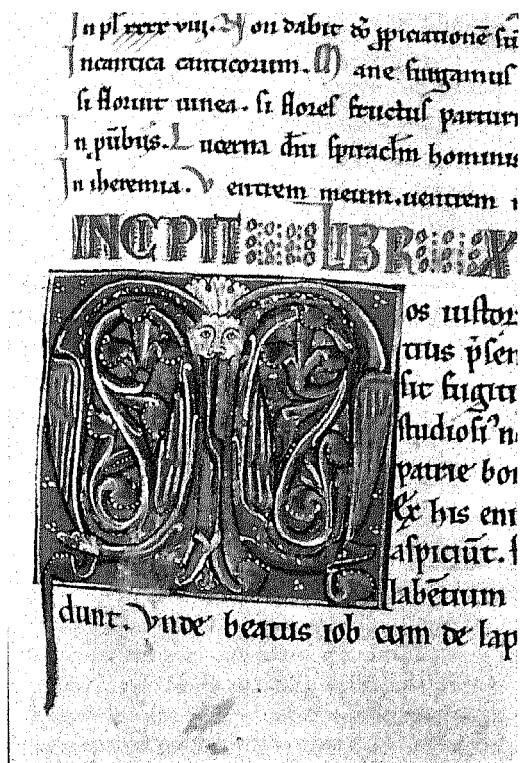 In pſ xxxx viij. Non dabit dō ꝓpiciationē ſu
In cantica canticorum. Mane ſurgamus
ſi floruit uinea. ſi floreſ fructuſ partur
In ꝓūbiis. Lucerna dn̄i ſpiraclm̄ hominis
In iheremia. Ventrem meum. uentrem
INCIPIT LIBER X
Mos iuſtor
tius p̄ſen
ſit fugiti
ſtudioſiꝰ n
patrie bo
Ex his eni
aſpiciūt.
labentium
dunt. Vnde beatus iob cum de lap